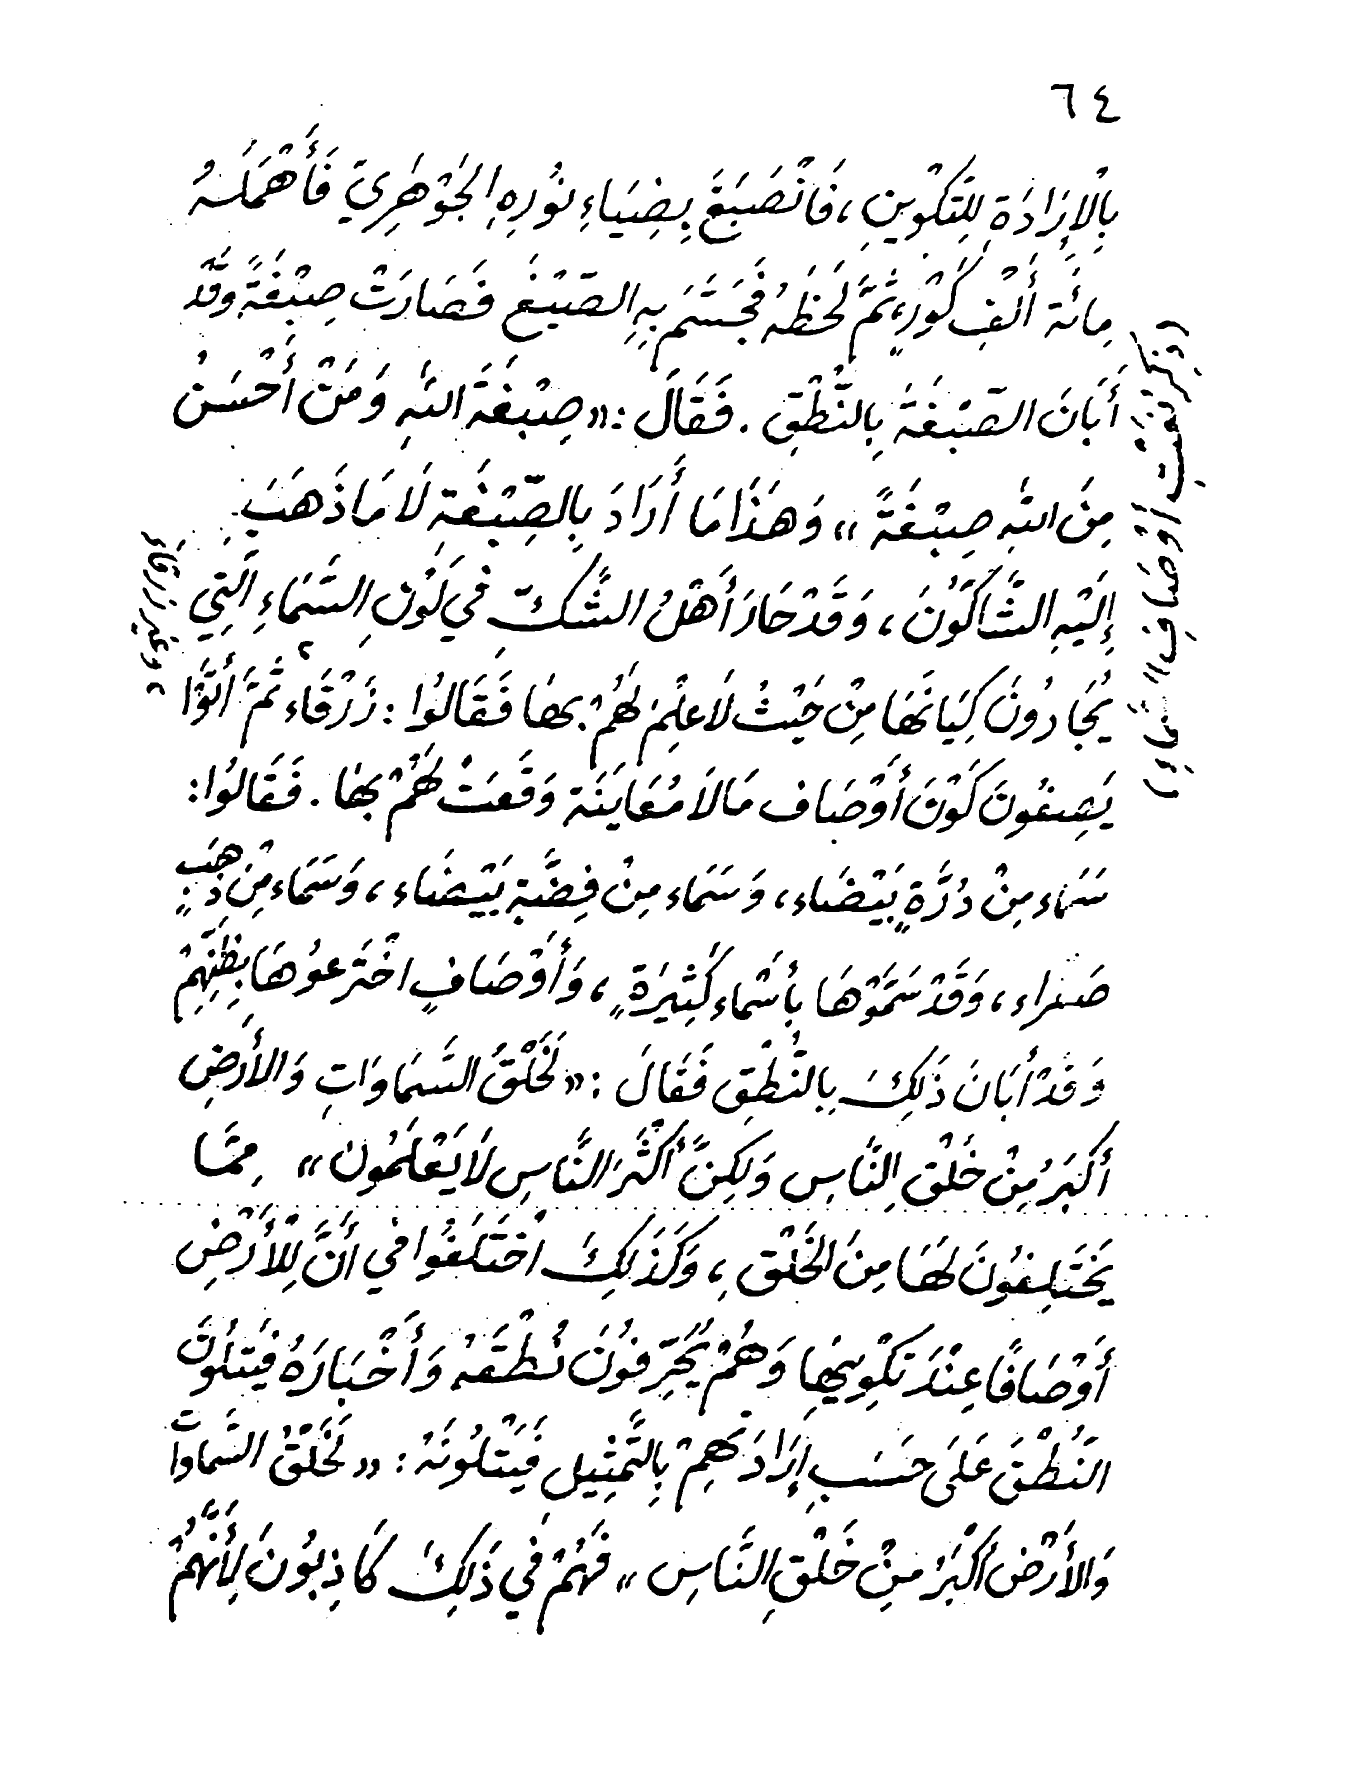 ٦٤
بِالْإِرَادَةِ لِلتَّكْوِينِ ، فَانْصَبَغَ بِضِيَاءِ نُورِهِ الجَوْهَرِيِّ فَأَهْمَلَهُ
مِائَة أَلْفِ كَوْرٍ، ثُمَّ لَحَظَهُ فَجَسَّمَ بِهِ الصَّبْغَ فَصَارَتْ صِبْغَةً وَقَدْ
أَبَانَ الصِّبْغَةَ بِالنُّطْقِ . فَقَالَ : « صِبْغَةَ اللهِ وَمَنْ أَحْسَنُ
مِنَ اللهِ صِبْغَةً » وَهَذَا مَا أَرَادَ بِالصِّبْغَةِ لَا مَا ذَهَبَ
إِلَيْهِ الشَّاكُّونَ ، وَقَدْ حَارَ أَهْلُ الشَّكِّ فِي لَوْنِ السَّمَاءِ الَّتِي
يُحَادُونَ كِيَانَهَا مِنْ حَيْثُ لَا عِلْمَ لَهُمْ بِهَا فَقَالُوا : زَرْقَاء ثُمَّ أَتَوْا
يَصِفُونَ كَوْنَ أَوْصَاف مَا لَا مُعَايَنَة وَقَعَتْ لَهُمْ بِهَا . فَقَالُوا :
سَمَاء مِنْ دُرَّةٍ بَيْضَاء ، وَسَمَاء مِنْ فِضَّةٍ بَيْضَاء ، وَسَمَاء مِنْ ذَهَبٍ
صَفْرَاء ، وَقَدْ سَمَّوْهَا بِأَسْمَاء كَثِيرَةٍ ، وَأَوْصَافٍ اخْتَرَعُوهَا بِظَنِّهِمْ
وَقَدْ أَبَانَ ذَلِكَ بِالنُّطْقِ فَقَالَ : « لَخَلْقُ السَّمَاوَاتِ وَالأَرْضِ
أَكْبَرُ مِنْ خَلْقِ النَّاسِ وَلَكِنَّ أَكْثَرَ النَّاسِ لَا يَعْلَمُونَ » مِمَّا
يَخْتَلِفُونَ لَهَا مِنَ الخَلْقِ ، وَكَذَلِكَ اخْتَلَفُوا فِي أَنَّ لِلْأَرْضِ
أَوْصَافًا عِنْدَ تَكْوِينِهَا وَهُمْ يُحَرِّفُونَ نُطْقَهُ وَأَخْبَارَهُ فَيَتْلُونَ
النُّطْقَ عَلَى حَسَبِ إِرَادَتِهِمْ بِالتَّمْثِيلِ فَيَتْلُونَهُ : « لَخَلْقُ السَّمَاوَاتِ
وَالأَرْضِ أَكْبَرُ مِنْ خَلْقِ النَّاسِ » فَهُمْ فِي ذَلِكَ كَاذِبُونَ لِأَنَّهُمْ
أَوْصَافِ
وغير زرقاء